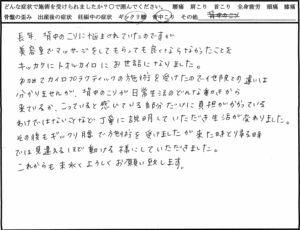 どんな症状で施術を受けられましたか?○で囲んでください。 腰痛 肩こり 首こり 全身疲労 頭痛 膝痛
骨盤の歪み 出産後の症状 妊娠中の症状 ギックリ腰 背中こり その他
長年、背中のこりに悩まされていたのですが
美容室でマッサージをしてもらっても良くならなかったことを
キッカケにトキルカイロにお世話になりました。
初めてカイロプラクティックの施術を受けたので他院との違いは
分かりませんが、背中のこりが日常生活のどんな動きから
来ているか、こっていると感じている部分だけに負担がかかっている
わけではないことなど丁寧に説明していただき生活が変わりました。
その後もギックリ腰で施術を受けましたが来た時と帰る時
では見違えるほど動ける様にしていただきました。
これからも末永くよろしくお願い致します。